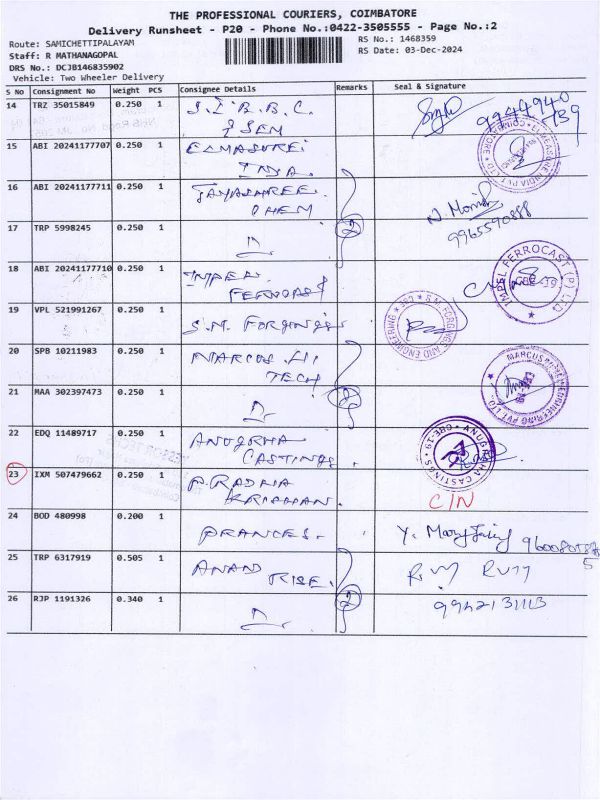 THE PROFESSIONAL COURIERS, COIMBATORE
Delivery Runsheet - P20 - Phone No.:0422-3505555 - Page No.:2
Route: SAMICHETTIPALAYAM
RS No.: 1468359
Staff: R MATHANAGOPAL
RS Date: 03-Dec-2024
DRS No.: DCJB146835902
Vehicle: Two Wheeler Delivery
S No Consignment No Weight PCS Consignee Details Remarks Seal & Signature
14 TRZ 35015849 0.250 1 S.I.B.B.C.
15 ABI 20241177707 0.250 1
16 ABI 20241177711 0.250 1 JAYASHREE
CHEM
17 TRP 5998245 0.250 1
9965590888
18 ABI 20241177710 0.250 1 IMPEL
IMPEL FERROCAST (P) LTD
19 VPL 521991267 0.250 1 S.M. FORGINGS
S.M. FORGING AND ENGINEERING
CBE
20 SPB 10211983 0.250 1 MARCUS HI
TECH
21 MAA 302397473 0.250 1
22 EDQ 11489717 0.250 1 ANUGRHA
CASTINGS.
ANUGRAHA CASTINGS
CBE-19
23 IXM 507479662 0.250 1 P. RADHA
KRISHNAN.
C/N
24 BOD 480998 0.200 1 PRANCES.
25 TRP 6317919 0.505 1 ANAND
RISE.
26 RJP 1191326 0.340 1